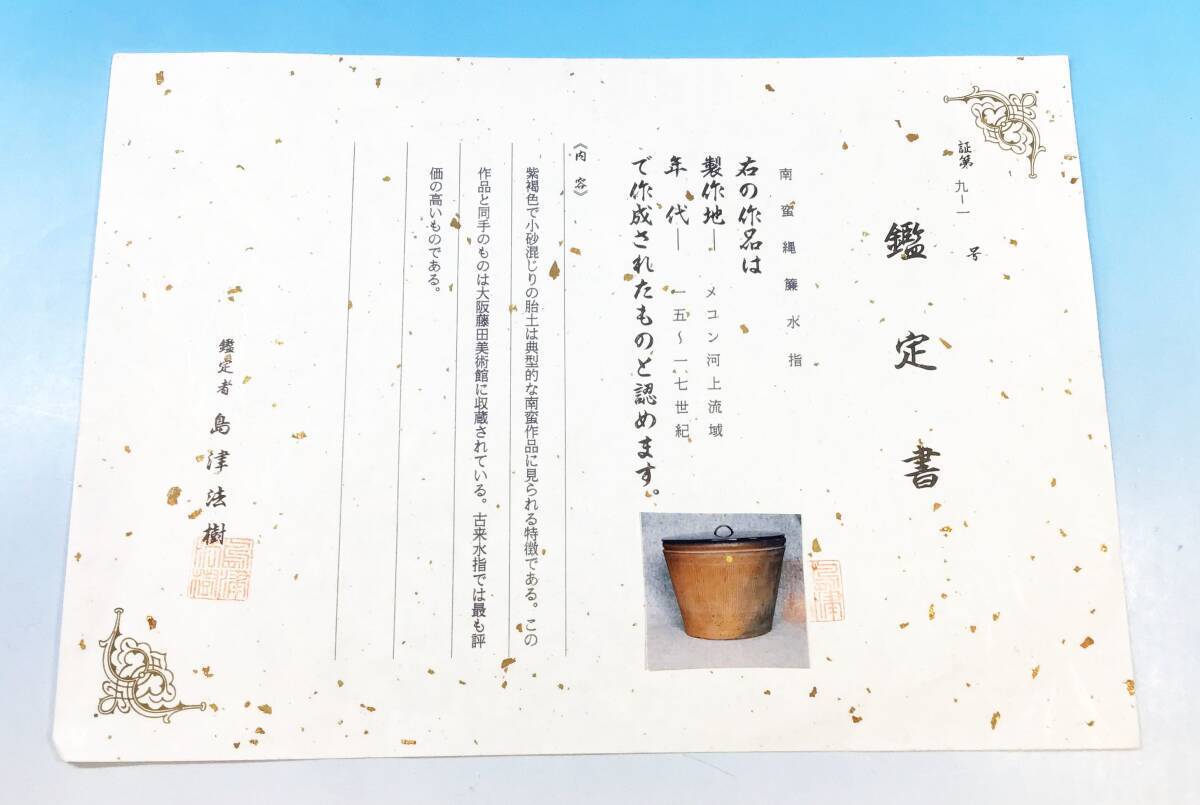 証第 九-一 号
鑑定書
南蛮縄簾水指
右の作名は
製作地― メコン河上流域
年代― 一五～一七世紀
で作成されたものと認めます。
《内容》
紫褐色で小砂混じりの胎土は典型的な南蛮作品に見られる特徴である。この
作品と同手のものは大阪藤田美術館に収蔵されている。古来水指では最も評
価の高いものである。
鑑定者 島津法樹
島津